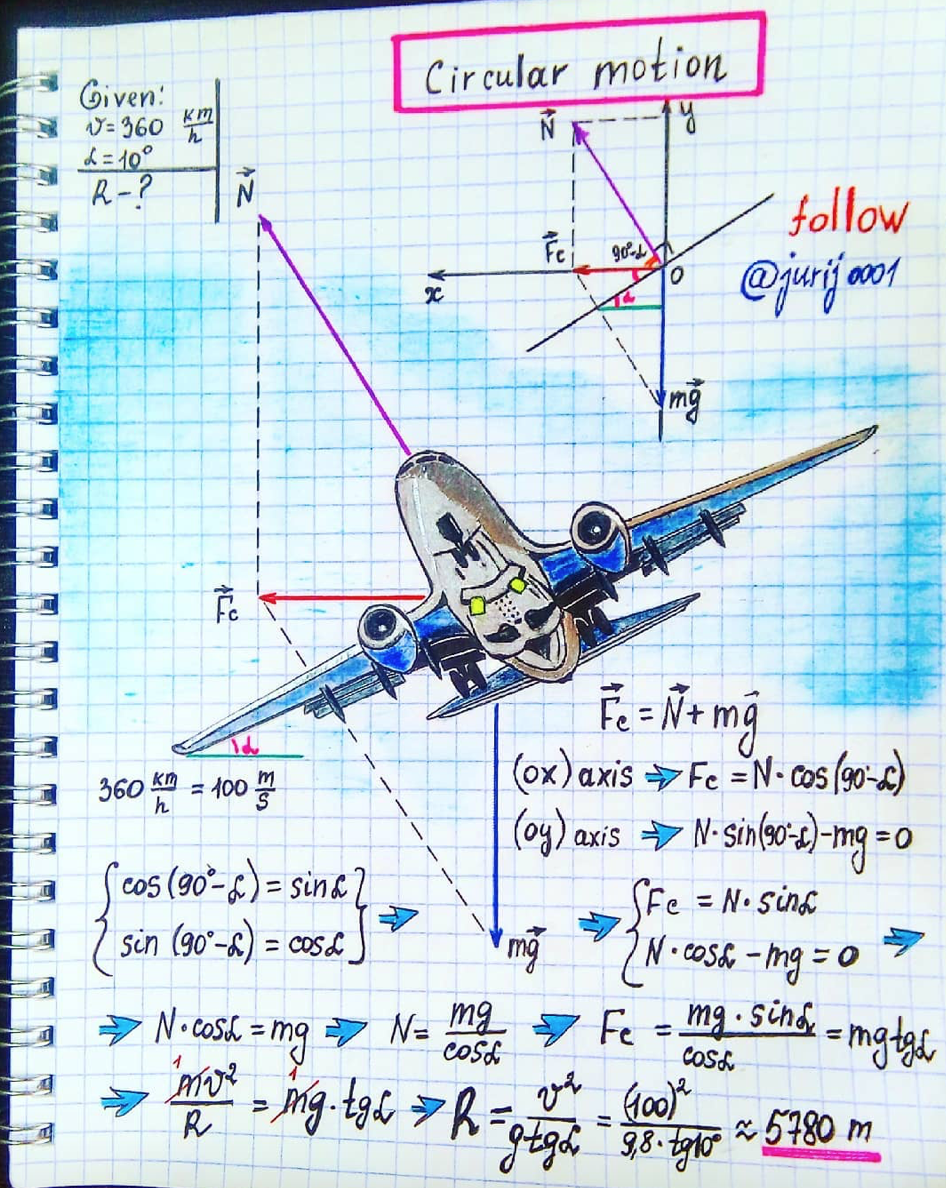 Circular motion
Given:
v=360 km/h
α=10°
R-?
N⃗
N⃗
y
F⃗c
90°-α
O
x
α
mg⃗
follow
@jurij0001
F⃗c
α
360 km/h = 100 m/s
F⃗c = N⃗ + mg⃗
(ox) axis ⇒ Fc = N·cos(90°-α)
(oy) axis ⇒ N·sin(90°-α)-mg=0
{cos(90°-α) = sinα
sin(90°-α) = cosα} ⇒
mg⃗
⇒ {Fc = N·sinα
N·cosα - mg = 0 ⇒
⇒ N·cosα = mg ⇒ N = mg/cosα ⇒ Fc = mg·sinα/cosα = mgtgα
1 1
⇒ mv²/R = mg·tgα ⇒ R = v²/gtgα = (100)²/9,8·tg10° ≈ 5780 m